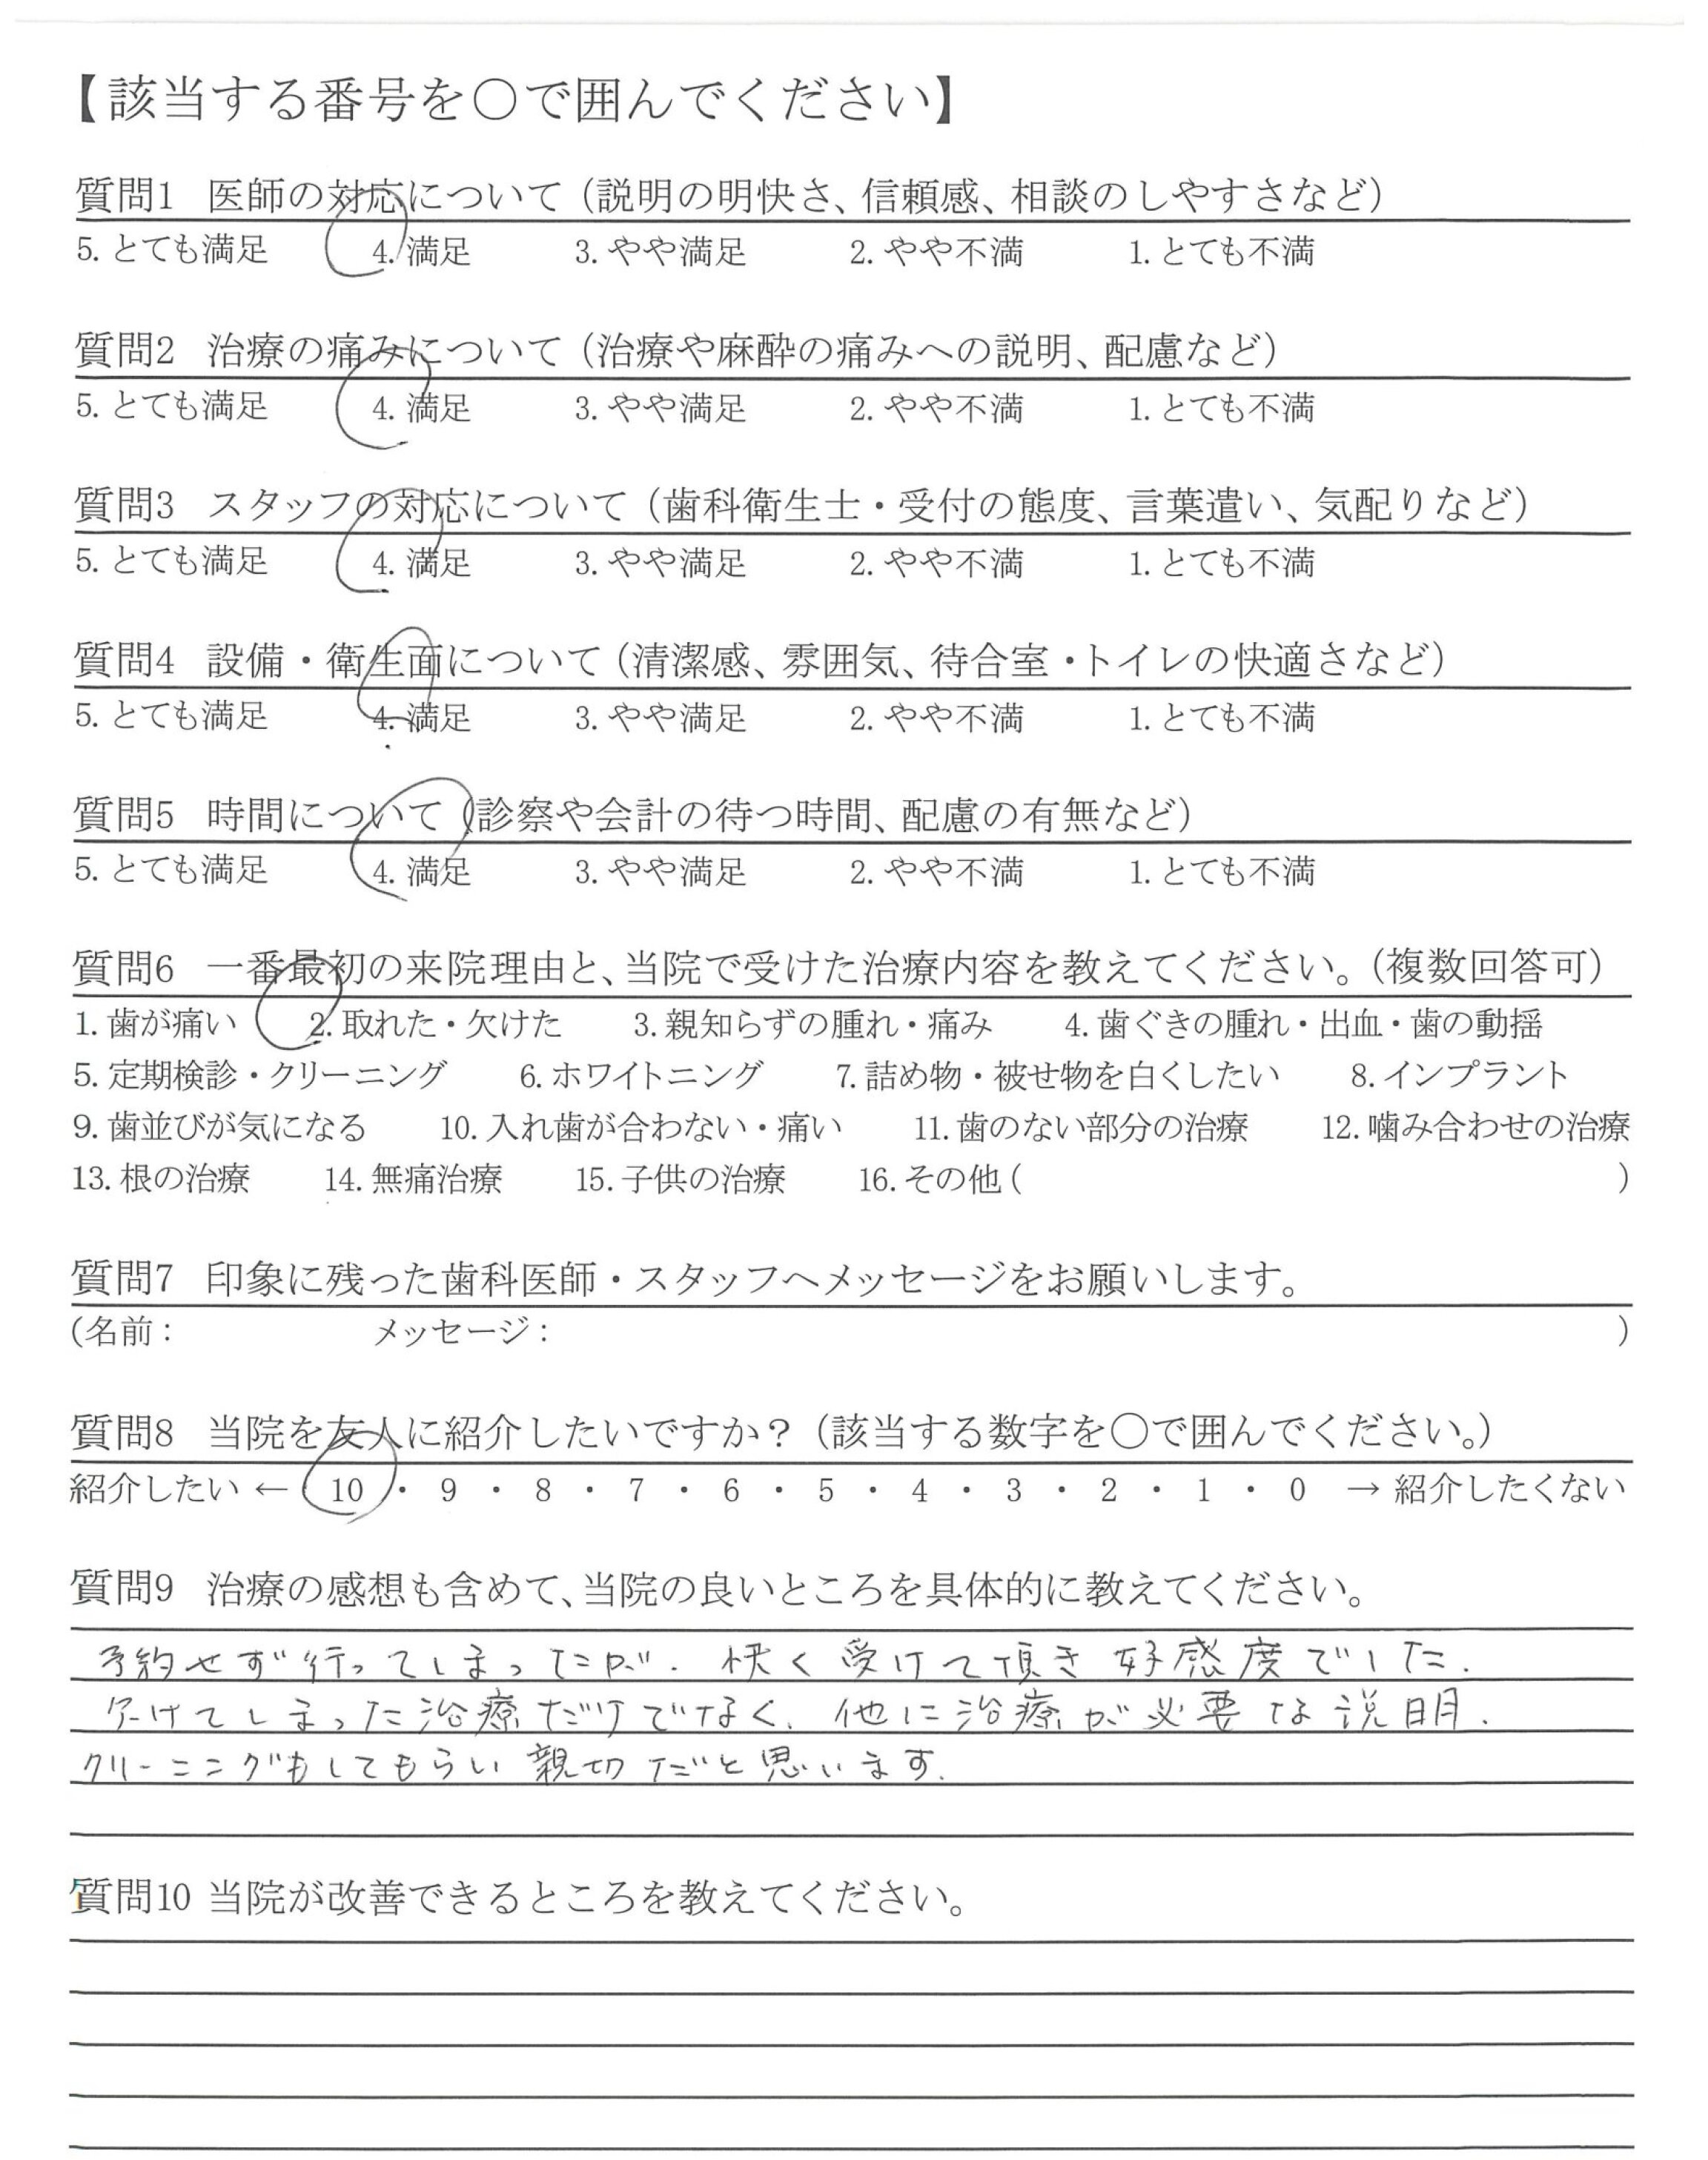 【該当する番号を○で囲んでください】
質問1 医師の対応について（説明の明快さ、信頼感、相談のしやすさなど）
5. とても満足 4. 満足 3. やや満足 2. やや不満 1. とても不満
質問2 治療の痛みについて（治療や麻酔の痛みへの説明、配慮など）
5. とても満足 4. 満足 3. やや満足 2. やや不満 1. とても不満
質問3 スタッフの対応について（歯科衛生士・受付の態度、言葉遣い、気配りなど）
5. とても満足 4. 満足 3. やや満足 2. やや不満 1. とても不満
質問4 設備・衛生面について（清潔感、雰囲気、待合室・トイレの快適さなど）
5. とても満足 4. 満足 3. やや満足 2. やや不満 1. とても不満
質問5 時間について（診察や会計の待つ時間、配慮の有無など）
5. とても満足 4. 満足 3. やや満足 2. やや不満 1. とても不満
質問6 一番最初の来院理由と、当院で受けた治療内容を教えてください。（複数回答可）
1. 歯が痛い 2. 取れた・欠けた 3. 親知らずの腫れ・痛み 4. 歯ぐきの腫れ・出血・歯の動揺
5. 定期検診・クリーニング 6. ホワイトニング 7. 詰め物・被せ物を白くしたい 8. インプラント
9. 歯並びが気になる 10. 入れ歯が合わない・痛い 11. 歯のない部分の治療 12. 噛み合わせの治療
13. 根の治療 14. 無痛治療 15. 子供の治療 16. その他（ ）
質問7 印象に残った歯科医師・スタッフへメッセージをお願いします。
（名前： メッセージ： ）
質問8 当院を友人に紹介したいですか？（該当する数字を○で囲んでください。）
紹介したい ← 10 ・ 9 ・ 8 ・ 7 ・ 6 ・ 5 ・ 4 ・ 3 ・ 2 ・ 1 ・ 0 → 紹介したくない
質問9 治療の感想も含めて、当院の良いところを具体的に教えてください。
予約せず行ってしまったが、快く受けて頂き好感度でした.
欠けてしまった治療だけでなく、他に治療が必要な説明.
クリーニングもしてもらい親切だと思います.
質問10 当院が改善できるところを教えてください。